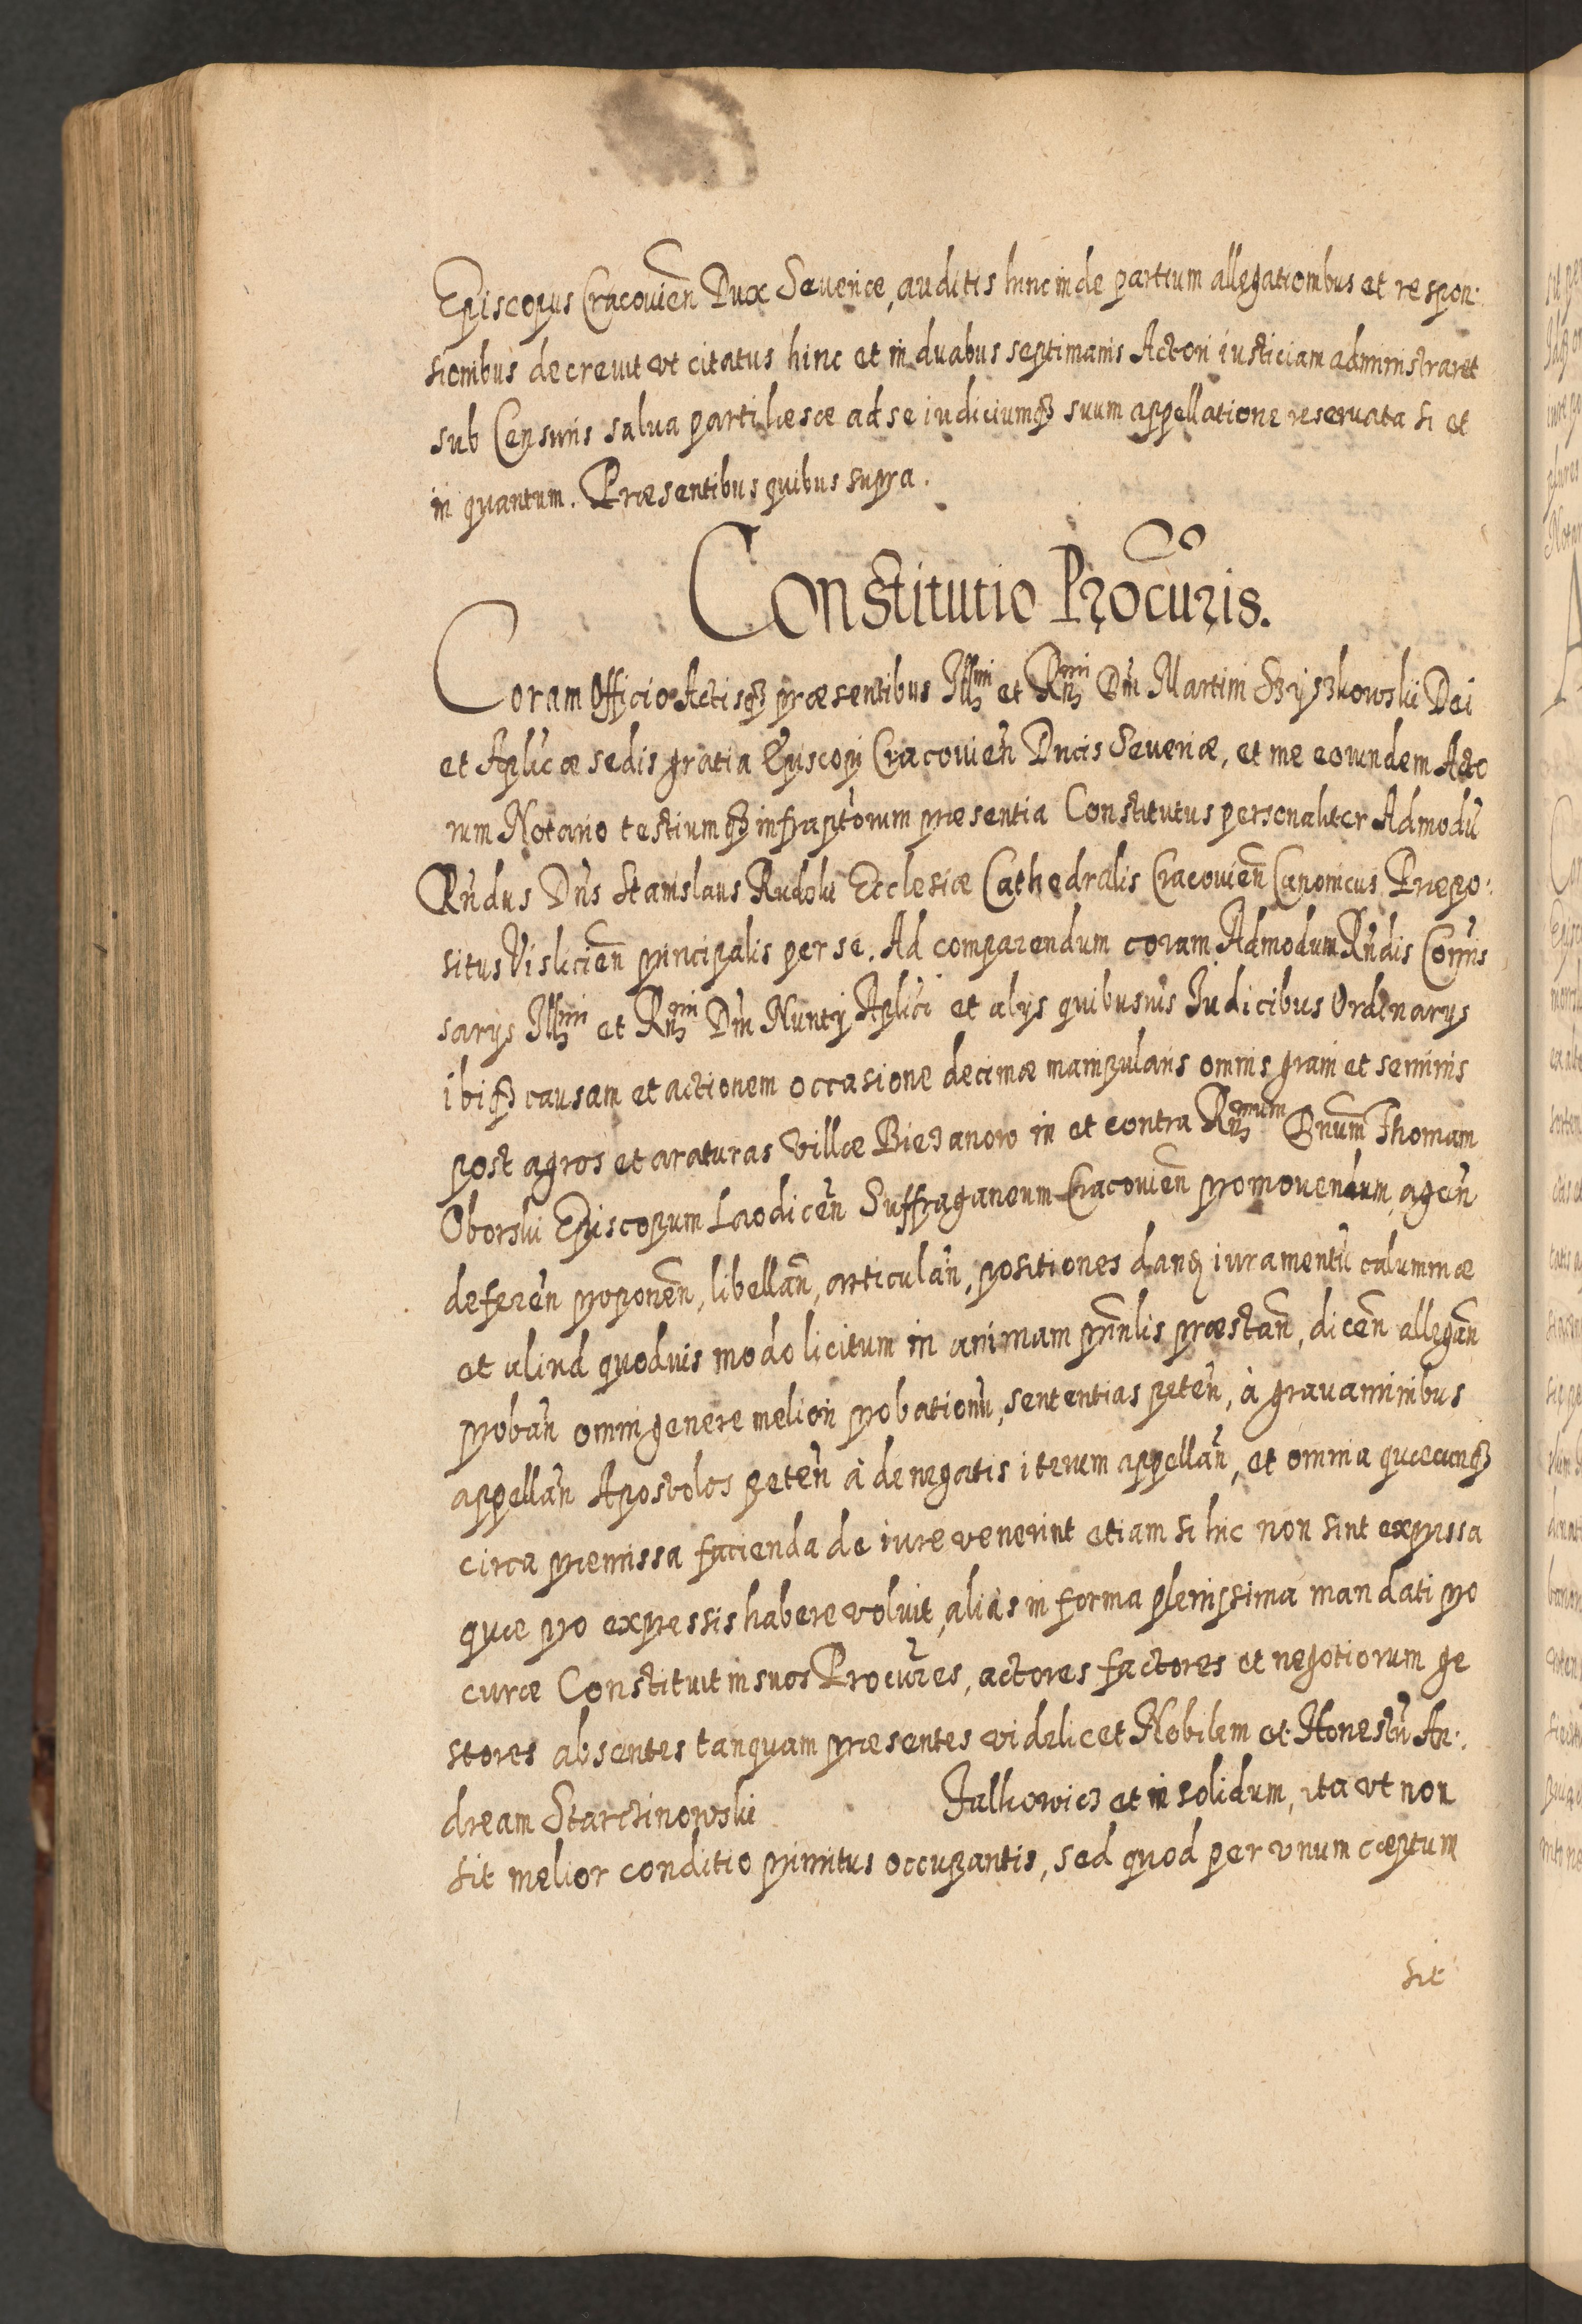 Episcopus Cracovien̄ Dux Severiæ, auditis hinc inde partium allegationibus et respon:
sionibus decrevit vt citatus hinc et in duabus septimanis Actori iusticiam administraret
sub Censuris salva parti læsæ ad se iudiciumq₃ suum appellatione reservata si et
in quantum. Præsentibus quibus supra.
Constitutio Procūris.
Coram Officio Actisq₃ præsentibus Illmi et Rmi Dni Martini Szyszkowskii Dei
et Aplicæ sedis gratia Episcopi Cracovien̄ Ducis Severiæ, et me eorundem Acto
rum Notario testiumq₃ infraptorum præsentia Constitutus personaliter Admodū
Rndus Dns Stanislaus Rudolu Ecclesiæ Cathedralis Cracovien̄ Canonicus, Præpo:
situs Vislicien̄ principalis per se. Ad comparendum coram Admodum Rndis Com̄is
sarys Illmi et Rmi Dni Nunty Aplici et alys quibusvis Iudicibus Ordinarys
ibiq₃ causam et actionem occasione decimæ manipularis omnis grani et seminis
post agros et araturas villæ Biezanow in et contra Rmum Dnum Thomam
Oborski Episcopum Laodicen̄ Suffraganeum Cracovien̄ promovendum, agen̄
deferen̄ proponen̄, libellan̄, articulan̄, positiones danq iuramentū calumniæ
et aliud quodvis modo licitum in animam prin̄lis præstan̄, dicen̄ allegan̄
proban̄ omni genere meliori probationū, sententias peten̄, à gravaminibus
appellan̄ Apostolos peten̄ à denegatis iterum appellan̄, et omnia quæcunq₃
circa præmissa facienda de iure venerint etiam si hic non sint expressa
quæ pro expressis habere voluit, alias in forma plenissima mandati pro
curæ Constituit in suos Procūres, actores factores et negotiorum ge
stores absentes tanquam præsentes videlicet Nobilem et Honestū An:
dream Starczinowski Jalkowicz et in solidum, ita vt non
sit melior conditio primitus occupantis, sed quod per vnum cœptum
sit